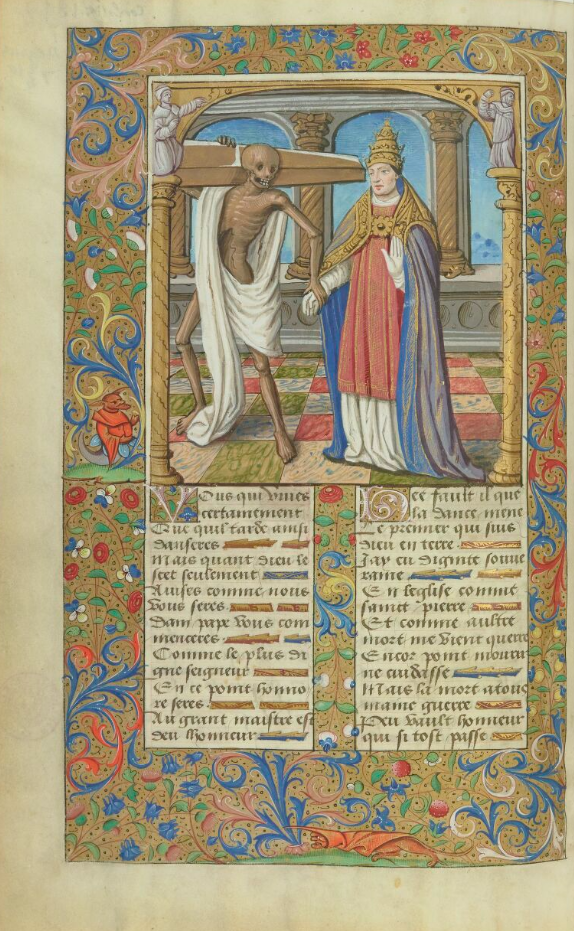 Vous qui vives
certainement
Que quil tarde ainsi
danseres
Mais quant dieu le
scet seulement
Auises comme vous
vous feres
Dam pape vous com
menceres
Comme le plus di
gne seigneur
En ce point honno
re seres
Au grant maistre est
deu lhonneur
Hee fault il que
la dance mene
Le premier qui suis
dieu en terre
Jay eu dignite souue
raine
En leglise comme
sainct pierre
Et comme aultre
mort me vient querre
Encor point mourir
ne cuidasse
Mais la mort a tous
maine guerre
Peu vault honneur
qui si tost passe